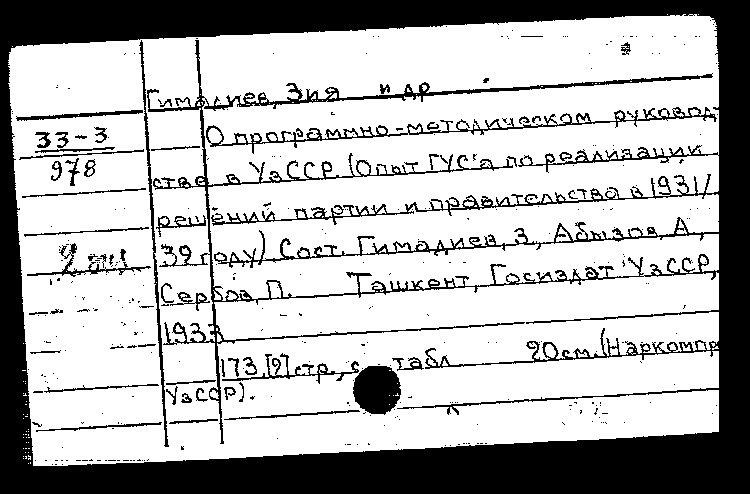 Гимадиев, Зия и др
33-3
978
О программно-методическом руковод-
стве в УзССР. (Опыт ГУС'а по реализации
решений партии и правительства в 1931/
32 году) Сост. Гимадиев, З., Абызов, А.,
2 экз.
Сербов, П. Ташкент, Госиздат УзССР,
1933
173,[2] стр., с табл 20 см. (Наркомпр
УзССР).